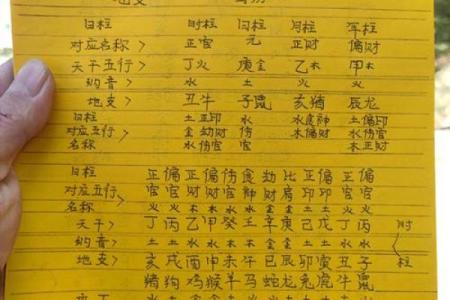 日柱 时柱 日柱 月柱 年柱
对应名称> 正官 元 正财 偏财
天干五行> 丁火 庚金 乙木 甲木
纳音> 水 土 火 火
地支> 丑牛 子鼠 亥猪 辰龙
日柱 土正印 水 水食神 土偏印
对应五行> 金劫财 伤官 木偏财 水伤官
名称 水伤官 木正财
日柱 正偏正偏伤食劫比正偏正偏
对应五行> 官官财财官神财肩印印官官
名称 火火木木水水金金土土火火
天干> 丁丙乙甲癸壬辛庚己戊丁丙
纳音> 土土水水木木金金土土水水
地支> 亥戌酉申未午巳辰卯寅丑子
猪狗鸡猴羊马蛇龙兔虎牛鼠
时柱